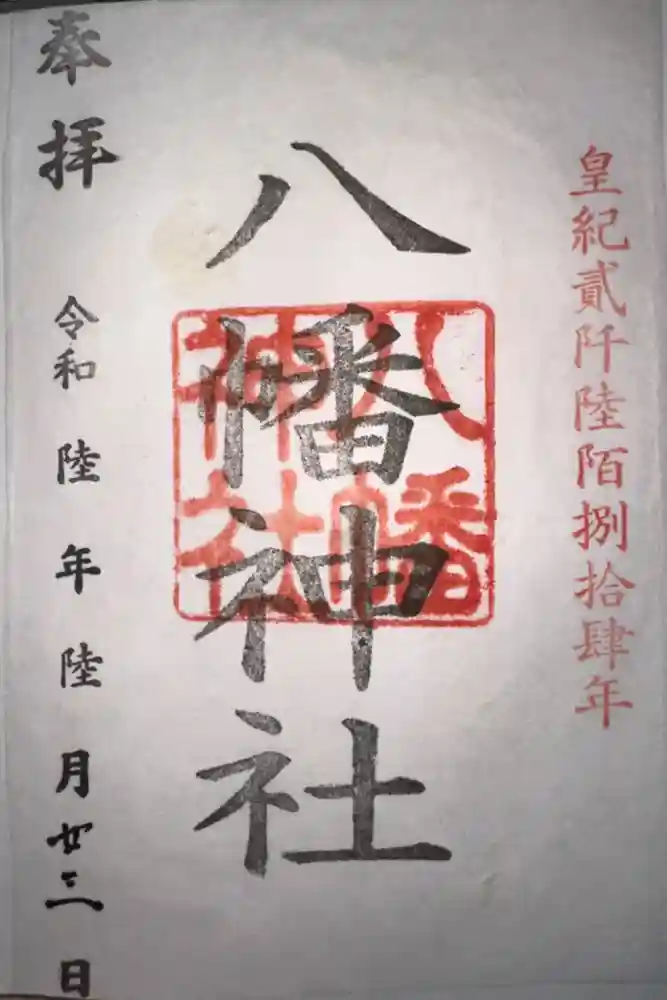 皇紀貳阡陸陌捌拾肆年
八幡神社
八幡
神社
奉拝
令和陸年陸月廿三日